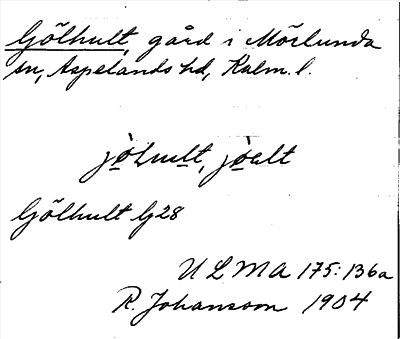 Gölhult, gård i Mörlunda
sn, Aspelands hd, Kalm. l.
jòlult, jòalt
Gölhult Gj28
ULMA 175:136a
R. Johansson 1904